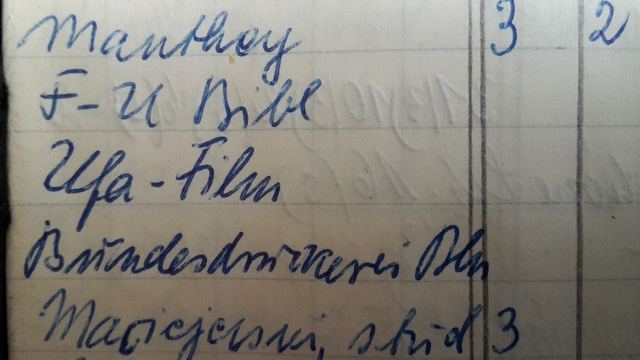 Manthey 3 2
F-U Bibl
Ufa-Film
Bundesdruckerei Bln
Maciejewski, stud 3